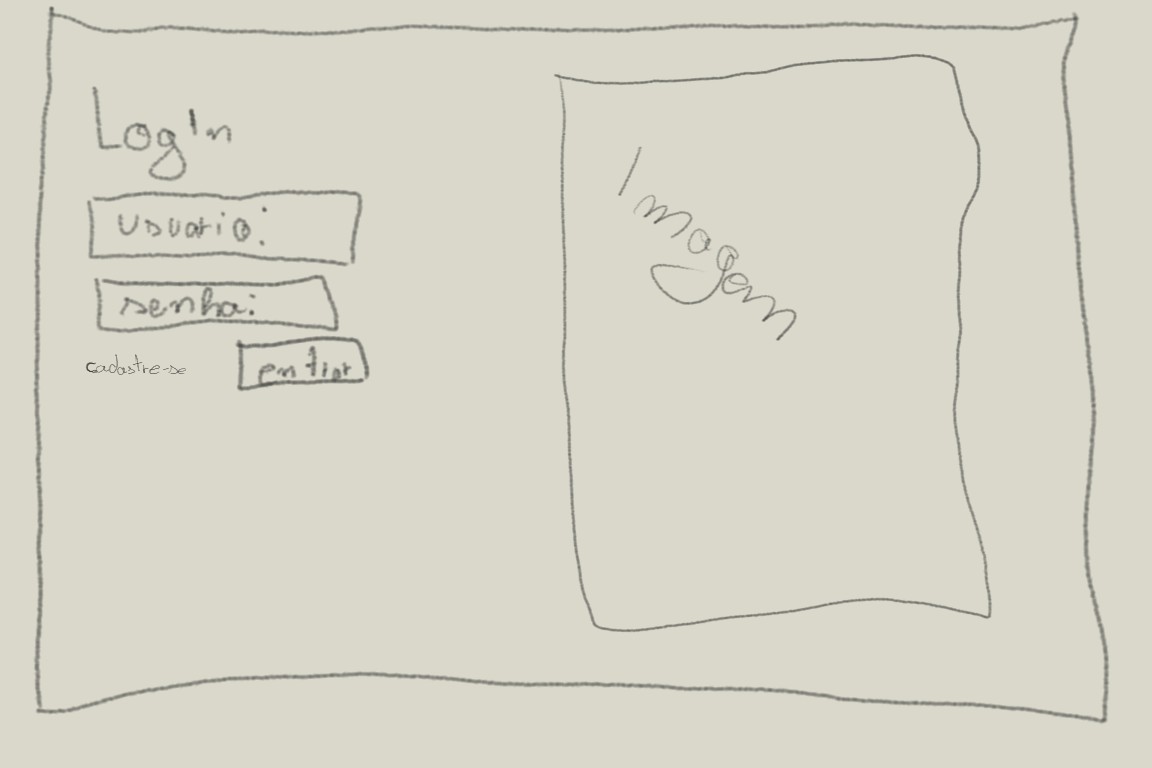 Login
usuario:
senha:
cadastre-se
entrar
Imagem